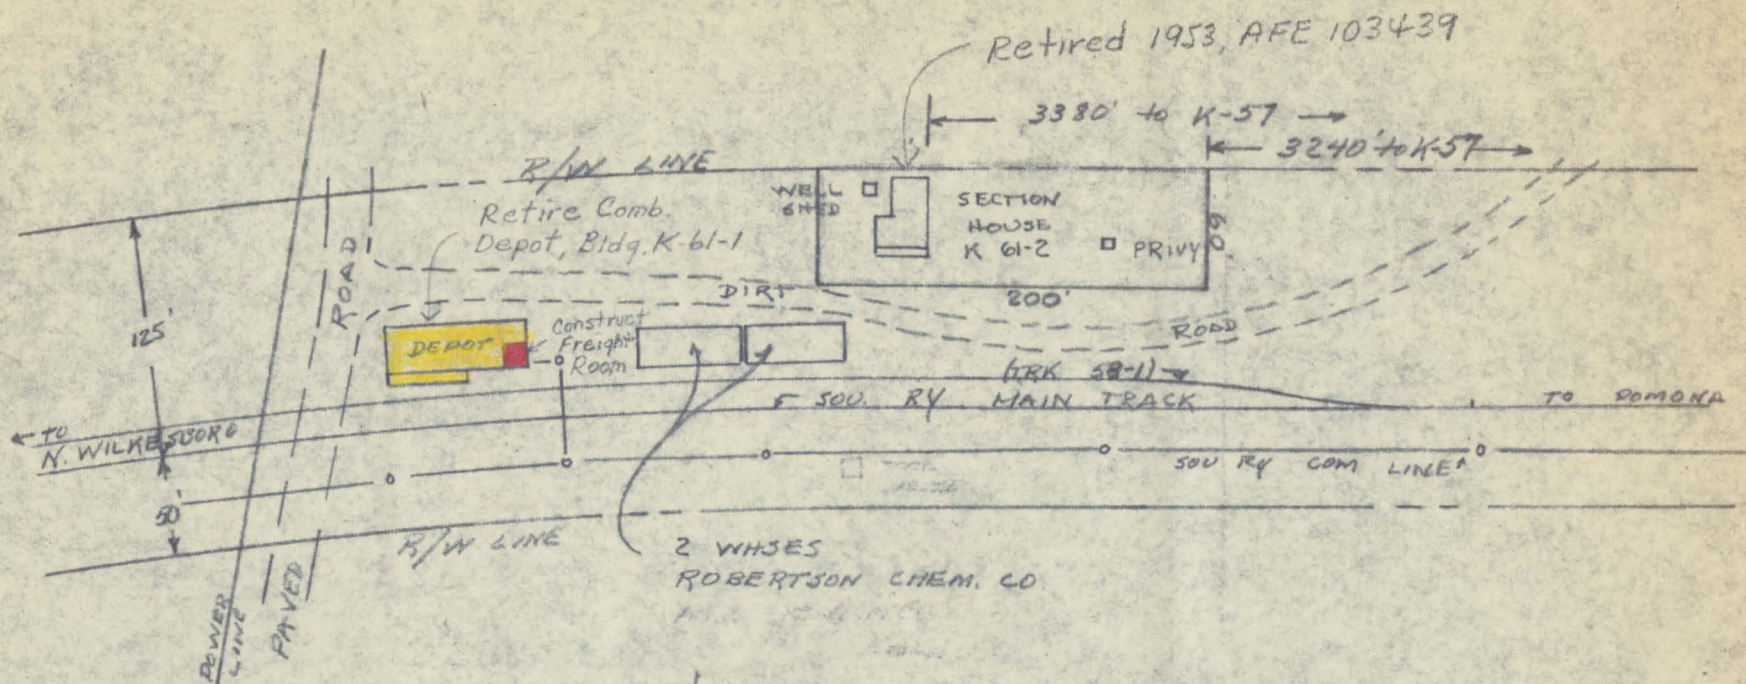 Retired 1953, AFE 103439
3380' to K-57
3240' to K-57
R/W LINE
WELL
SHED
SECTION
HOUSE
K 61-2
PRIVY
60'
200'
Retire Comb.
Depot, Bldg. K-61-1
ROAD
DIRT
ROAD
125'
DEPOT
Construct
Freight
Room
(TRK 58-1)
SOU. RY MAIN TRACK
TO POMONA
TO
N. WILKESBORO
SOU RY COM LINE
50'
R/W LINE
2 WHSES
ROBERTSON CHEM. CO
POWER
LINE
PAVED